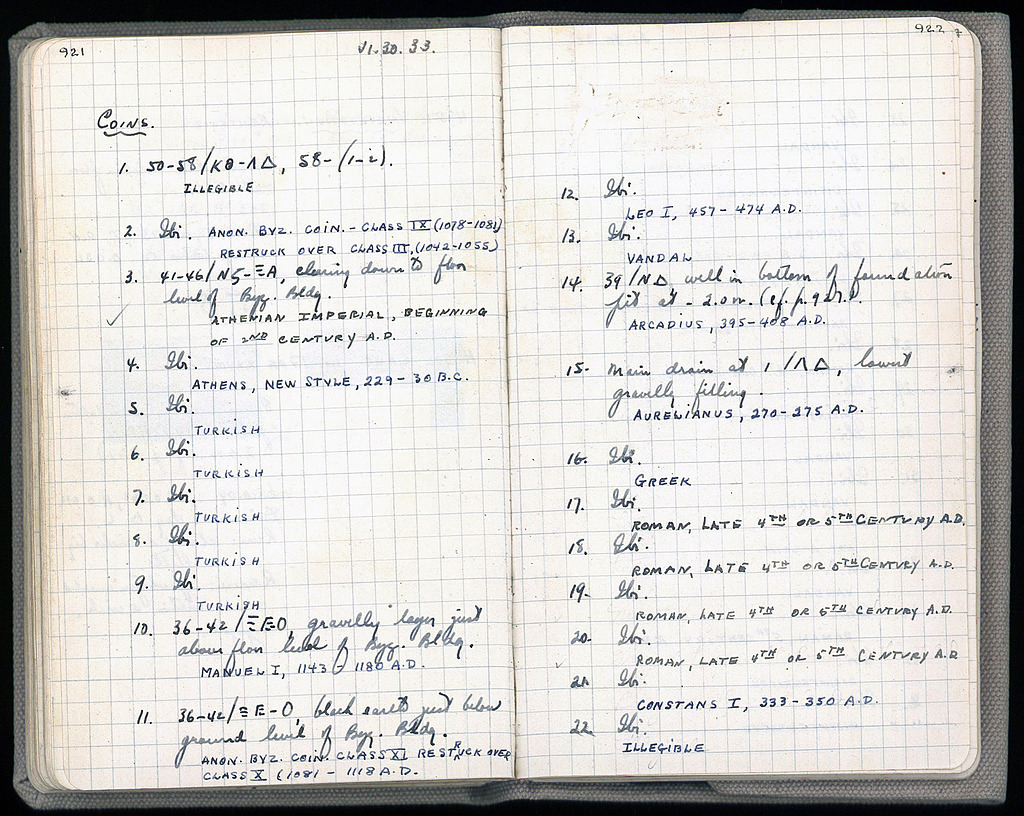 921
VI. 30. 33.
COINS.
1. 50-58/ΚΘ-ΛΔ, 58-(1-2).
ILLEGIBLE
2. Ibi. ANON. BYZ. COIN. - CLASS IX (1078-1081)
RESTRUCK OVER CLASS III, (1042-1055)
3. 41-46/ΝϚ-ΞΑ, clearing down to floor
level of Byz. Bldg.
✓ ATHENIAN IMPERIAL, BEGINNING
OF 2ND CENTURY A.D.
4. Ibi.
ATHENS, NEW STYLE, 229-30 B.C.
5. Ibi.
TURKISH
6. Ibi.
TURKISH
7. Ibi.
TURKISH
8. Ibi.
TURKISH
9. Ibi.
TURKISH
10. 36-42/ gravelly layer just
above floor level of Byz. Bldg.
MANUEL I, 1143-1180 A.D.
11. 36-42/ΞΕ-Ο, black earth just below
ground level of Byz. Bldg.
ANON. BYZ. COIN. CLASS XI RESTRUCK OVER
CLASS X (1081 - 1118 A.D.
922
12. Ibi.
LEO I, 457-474 A.D.
13. Ibi.
VANDAL
14. 39/ΝΔ well in bottom of foundation
pit at - 2.0 m. (cf. p.
ARCADIUS, 395-408 A.D.
15- Main drain at 1/ΛΔ, lowest
gravelly filling.
AURELIANUS, 270-275 A.D.
16. Ibi.
GREEK
17. Ibi.
ROMAN, LATE 4TH OR 5TH CENTURY A.D.
18. Ibi.
ROMAN, LATE 4TH OR 5TH CENTURY A.D.
19. Ibi.
ROMAN, LATE 4TH OR 5TH CENTURY A.D.
20. Ibi.
ROMAN, LATE 4TH OR 5TH CENTURY A.D
21. Ibi.
CONSTANS I, 333-350 A.D.
22. Ibi.
ILLEGIBLE